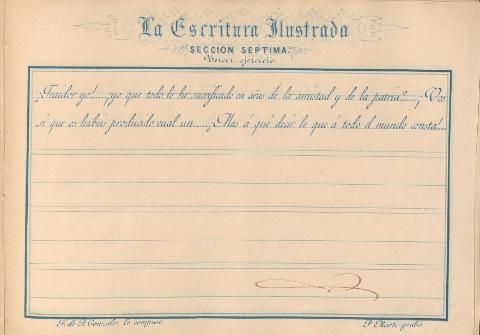 La Escritura Ilustrada
SECCION SEPTIMA.
Tercer ejercicio.
¡Traidor yo!.....¡yo que todo lo he sacrificado en aras de la amistad y de la patria?.....¡Vos
sí que os habeis producido cual un.....¡Mas á qué decir lo que á todo el mundo consta!...
F. de P. Gonzalo lo compuso
P. Martí grabó.